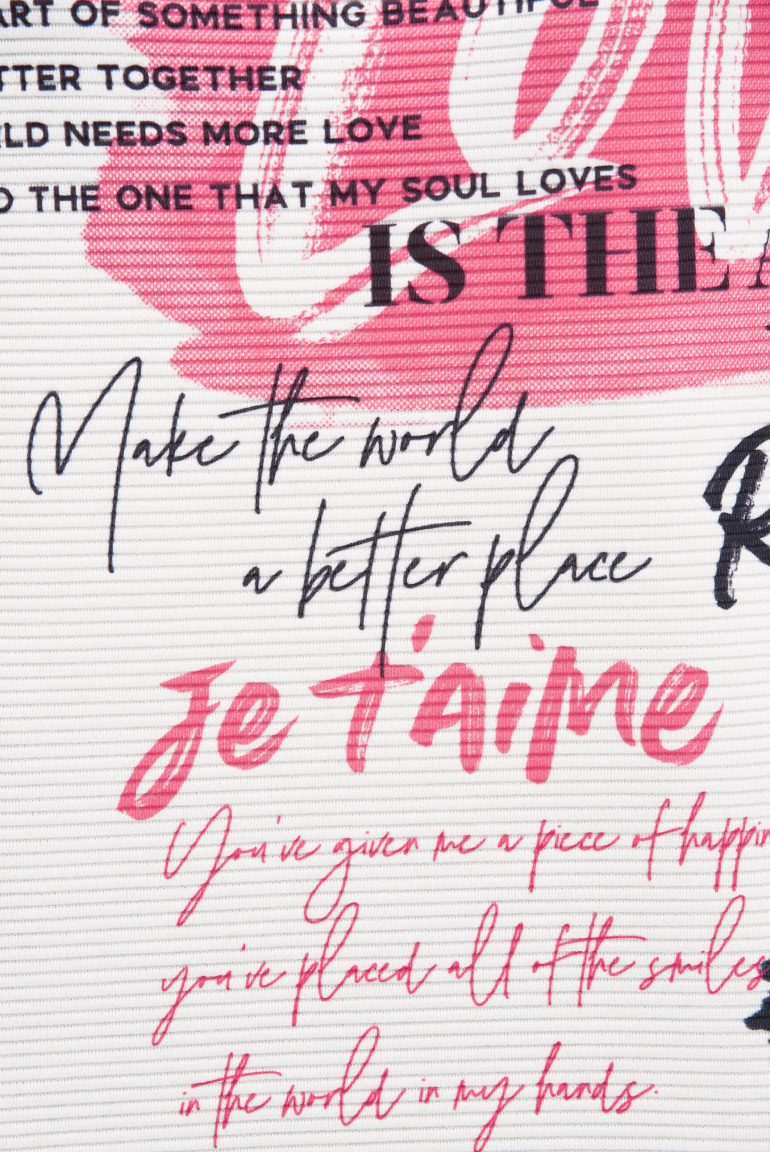 ART OF SOMETHING BEAUTIFUL
TTER TOGETHER
LD NEEDS MORE LOVE
O THE ONE THAT MY SOUL LOVES
IS THE A
Make the world
a better place
R
Je t'aime
You've given me a piece of happin
you've placed all of the smiles
in the world in my hands.